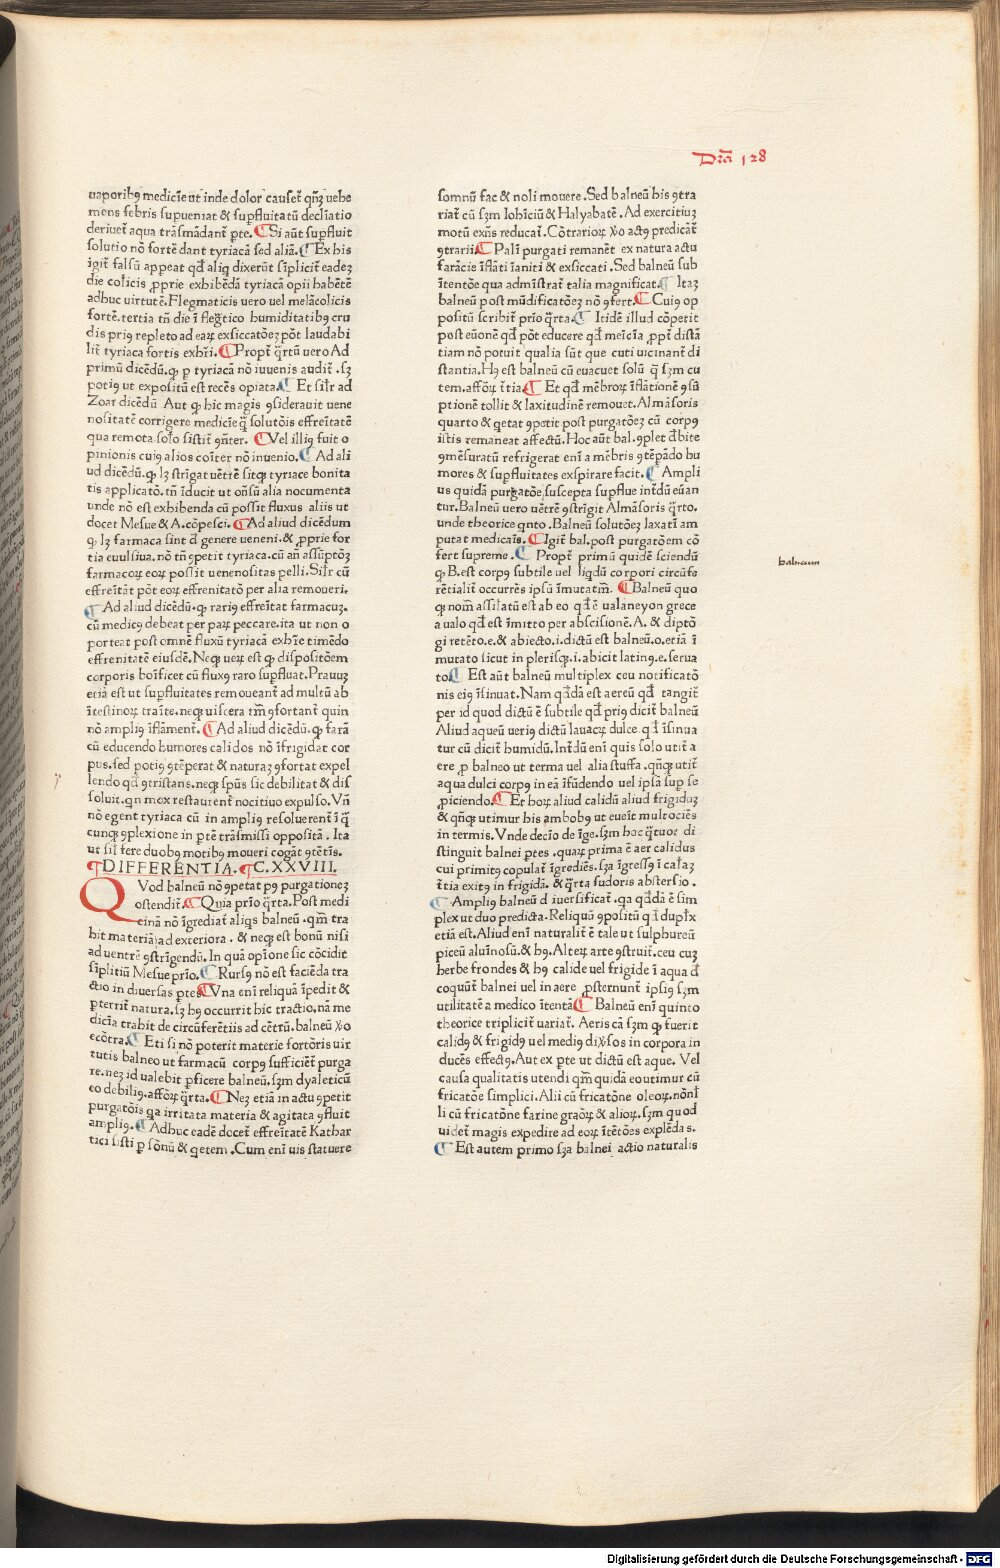 Dr̄a 128
uaporibꝰ medicīe ut inde dolor causet᷑ qn̄ꝫ uehe
mens febris supueniat & supfluitatū declīatio
deriuet᷑ aqua trāsmādant᷑ pte. ¶ Si aūt supfluit
solutio nō forte dant tyriacā sed aliā. ¶ Ex his
igit᷑ falsū appeat qd̄ aliq dixerūt sīplicit᷑ eadeꝫ
die colicis ꝓprie exhibēdā tyriacā opii habētē
adhuc uirtutē. Flegmaticis uero uel melācolicis
fortē. tertia tn̄ die ī flegtico humiditatibꝰ cru
dis priꝰ repleto ad eaꝝ exsiccatōeꝫ pōt laudabi
lit᷑ tyriaca fortis exhr̄i. ¶ Propt᷑ qrtū uero Ad
primū dicēdū. ꝙ p tyriacā nō iuuenis audit᷑. sꝫ
potiꝰ ut expositū est recēs opiata. ¶ Et silr ad
Zoar dicēdū Aut ꝙ hic magis ꝯsiderauit uene
nositatē corrigere medicīe q̄ solutōis effreītatē
qua remota solo sistit᷑ ꝯnter. ¶ Vel illiꝰ fuit o
pinionis cuiꝰ alios coīter nō inuenio. ¶ Ad ali
ud dicēdū. ꝙ lꝫ strīgat uētrē sitqꝫ tyriace bonita
tis applicatō. tn̄ īducit ut on̄sū alia nocumenta
unde nō est exhibenda cū possit fluxus aliis ut
docet Mesue & A. cōpesci. ¶ Ad aliud dicēdum
ꝙ lꝫ farmaca sint d̄ genere ueneni. & ꝓprie for
tia euulsiua. nō tn̄ ꝯpetit tyriaca. cū an̄ assūptōꝫ
farmacoꝝ eoꝝ possit uenenositas pelli. Silr cū
effreītat᷑ pōt eoꝝ effrenitatō per alia remoueri.
¶ Ad aliud dicēdū. ꝙ rariꝰ effreītat farmacuꝫ.
cū medicꝰ debeat per paꝝ peccare. ita ut non o
porteat post omnē fluxū tyriacā exhr̄e timēdo
effrenitatē eiusdē. Neqꝫ ueꝝ est ꝙ dispositōem
corporis boīficet cū fluxꝰ raro supfluat. Prauuꝫ
etiā est ut supfluitates remoueant᷑ ad multū ab
ītestinoꝝ traīte. neqꝫ uiscera tm̄ ꝯfortant᷑ quin
nō ampliꝰ īflāment᷑. ¶ Ad aliud dicēdū. ꝙ farā
cū educendo humores calidos nō īfrigidat cor
pus. sed potiꝰ ꝯtēperat & naturaꝫ ꝯfortat expel
lendo qd̄ ꝯtristans. neqꝫ spūs sic debilitat & dis
soluit. qn mox restaurent᷑ nocitiuo expulso. Vn̄
nō egent tyriaca cū in ampliꝰ resoluerent᷑ ī q̄
cunqꝫ ꝯplexione in ptē trāsmissā oppositā. Ita
ut sil fere duobꝰ motibꝰ moueri cogāt᷑ ꝯtētis.
¶ DIFFERENTIA. ¶ C. XXVIII.
QVod balneū nō ꝯpetat pꝰ purgationeꝫ
ostendit᷑. ¶ Quia prīo q̄rta. Post medi
cinā nō īgrediat᷑ aliqs balneū. qm̄ tra
hit materiā ad exteriora. & neqꝫ est bonū nisi
ad uentrē ꝯstrīgendū. In quā opīone sic cōcidit
sīplitiū Mesue prīo. ¶ Rursꝰ nō est faciēda tra
ctio in diuersas ptes ¶ Vna enī reliquā īpedit &
pterrit natura. sꝫ hꝰ occurrit hic tractio. nā me
dicīa trahit de circūferētiis ad cētrū. balneū ꝟo
ecōtra. ¶ Eti si nō poterit materie fortōris uir
tutis balneo ut farmacū corpꝰ sufficiēt᷑ purga
re. neꝫ id ualebit pficere balneū. sꝫm dyaleticū
eo debiliꝰ. affōꝝ q̄rta. ¶ Neꝫ etiā in actu ꝯpetit
purgatōis qa irritata materia & agitata ꝯfluit
ampliꝰ. ¶ Adhuc eadē docet᷑ effreītatē Kathar
tici sisti p sōnū & qetem. Cum enī uis statuere
somnū fac & noli mouere. Sed balneū his ꝯtra
riat᷑ cū sꝫm Iohīciū & Halyabatē. Ad exercitiuꝫ
motū exn̄s reducat᷑. Cōtrarioꝝ ꝟo actꝰ predicāt᷑
ꝯtrarii. ¶ Palī purgati remanēt ex natura actu
farācie īflāti īaniti & exsiccati. Sed balneū sub
ītentōe qua admīstrat᷑ talia magnificat. ¶ Itaꝫ
balneū post mūdificatōeꝫ nō ꝯfert. ¶ Cuiꝰ op
positū scribit᷑ prīo q̄rta. ¶ Itidē illud cōpetit
post euōnē qd̄ pōt educere qd̄ meīcīa ꝓpt᷑ distā
tiam nō potuit qualia sūt que cuti uicinant᷑ di
stantia. Hꝰ est balneū cū euacuet solū q̄ sꝫm cu
tem. affōꝝ t᷑tia. ¶ Et qd̄ mēbroꝝ īflationē ꝯsū
ptionē tollit & laxitudinē remouet. Almāsoris
quarto & qetat ꝯpetit post purgatōeꝫ cū corpꝰ
istis remaneat affectū. Hoc aūt bal. ꝯplet d̄bite
ꝯmēsuratū refrigerat enī a mēbris ꝯtēpādo hu
mores & supfluitates exspirare facit. ¶ Ampli
us quidā purgatōe suscepta supflue int᷑dū euan
tur. Balneū uero uētrē ꝯstrīgit Almāsoris q̄rto.
unde theorice qnto. Balneū solutōeꝫ laxatī am
putat medicaīs. ¶ Igit᷑ bal. post purgatōem cō
fert supreme. ¶ Propt᷑ primū quidē sciendū
ꝙ B. est corpꝰ subtile uel liqdū corpori circūfe
rētialit᷑ occurrēs ipsū īmutatm̄. ¶ Balneū quo
qꝫ nom̄ assīlatū est ab eo qd̄ ē ualaneyon grece
a ualo qd̄ est īmitto per abscisionē. A. & diptō
gi retēto. e. & abiecto. i. dictū est balneū. o. etiā ī
mutato sicut in plerisqꝫ. i. abicit latinꝰ. e. serua
to. ¶ Est aūt balneū multiplex ceu notificatō
nis eiꝰ īsinuat. Nam qd̄dā est aereū qd̄ tangit᷑
per id quod dictū ē subtile qd̄ priꝰ dicit᷑ balneū
Aliud aqueū ueriꝰ dictū lauacꝝ dulce. qd̄ īsinua
tur cū dicit᷑ humidū. Int᷑dū enī quis solo utit᷑ a
ere ꝓ balneo ut terma uel alia stuffa. qn̄qꝫ utit᷑
aqua dulci corpꝰ in eā īfūdendo uel ipsā sup se
ꝓiciendo. ¶ Et hoꝝ aliud calidū aliud frigiduꝫ
& qn̄qꝫ utimur his ambobꝰ ut eueīt multociēs
in termis. Vnde decīo de īge. sꝫm hoc q̄tuor di
stinguit balnei ptes. quaꝝ prima ē aer calidus
cui primitꝰ copulat᷑ īgrediēs. sꝫa īgressꝰ ī cal̄aꝫ
t᷑tia exitꝰ in frigidā. & q̄rta sudoris abstersio.
¶ Ampliꝰ balneū d iuersificat᷑. qa qd̄dā ē sim
plex ut duo predicta. Reliquū ꝯpositū qd̄ duplx
etiā est. Aliud enī naturalit᷑ ē tale ut sulphureū
piceū aluīosū. & hꝰ. Alteꝝ arte ꝯstruit᷑. ceu cuꝫ
herbe frondes & hꝰ calide uel frigide ī aqua d̄
coquūt᷑ balnei uel in aere ꝓsternunt᷑ ipsiꝰ sꝫm
utilitatē a medico ītentā ¶ Balneū enī quinto
theorice triplicit᷑ uariat᷑. Aeris cā sꝫm ꝙ fuerit
calidꝰ & frigidꝰ uel mediꝰ diꝟsos in corpora in
ducēs effectꝰ. Aut ex pte ut dictū est aque. Vel
causa qualitatis utendi qm̄ quidā eo utimur cū
fricatōe simplici. Alii cū fricatōne oleoꝝ. nōnl̄
li cū fricatōne farine graōꝝ & alioꝝ. sꝫm quod
uidet᷑ magis expedire ad eoꝝ ītētōes explēdas.
¶ Est autem primo sꝫa balnei actio naturalis
balneum
Digitalisierung gefördert durch die Deutsche Forschungsgemeinschaft - DFG